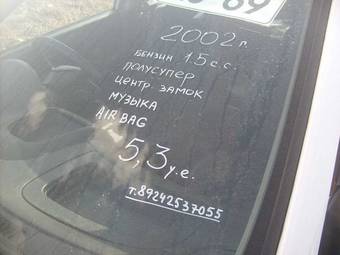 69
2002 г.
БЕНЗИН 1.5 с.с.
ПОЛУСУПЕР
ЦЕНТР ЗАМОК
МУЗЫКА
AIR BAG
5,3 у.е.
т.89242537055